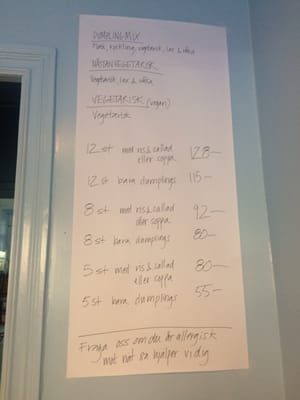 DUMPLINGMIX
Fläsk, kyckling, vegetarisk, lax & räka
NÄSTANVEGETARISK
Vegetarisk, lax & räka
VEGETARISK (vegan)
Vegetarisk
12 st med ris & sallad eller soppa 128-
12 st bara dumplings 115-
8 st med ris & sallad eller soppa 92-
8 st bara dumplings 80-
5 st med ris & sallad eller soppa 80-
5 st bara dumplings 55-
Fråga oss om du är allergisk
mot nåt så hjälper vi dig